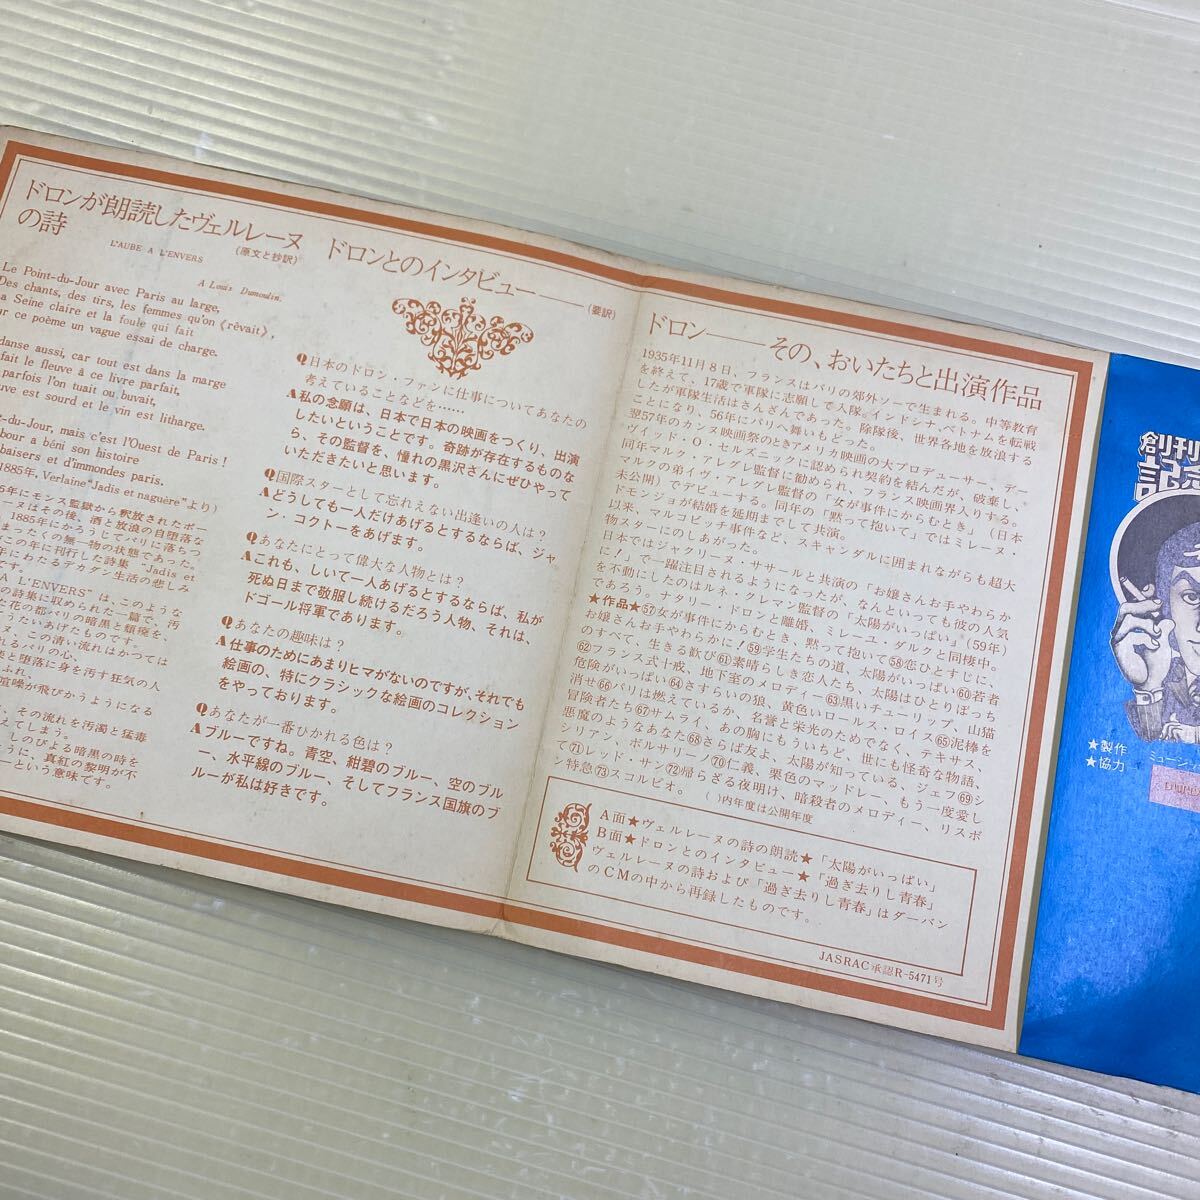 ドロンが朗読したヴェルレーヌ
の詩
(原文と抄訳)
L'AUBE A L'ENVERS
A Louis Dumoulin.
Le Point-du-Jour avec Paris au large,
Des chants, des tirs, les femmes qu'on《rêvait》,
a Seine claire et la foule qui fait
ur ce poème un vague essai de charge.
danse aussi, car tout est dans la marge
fait le fleuve à ce livre parfait,
parfois l'on tuait ou buvait,
uve est sourd et le vin est litharge.
t-du-Jour, mais c'est l'Ouest de Paris !
bour a béni son histoire
baisers et d'immondes paris.
1885, Verlaine"Jadis et naguère"より)
5年にモンス監獄から釈放されたポー
ーヌはその後、酒と放浪の自堕落な
1885年にかろうじてパリに落ちつ
まったくの無一物の状態であった。
この年に刊行した詩集"Jadis et
年にわたるデカダン生活の悲しみ
です。
A L'ENVERS"は、このような
の詩集に収められた一篇で、汚
た花の都パリの暗黒と頽廃を、
うたいあげたものです。
ヌ、この清い流れはかつては
るパリの心、
楽と堕落に身を汚す狂気の人
ふれ、
喧噪が飛びかうようになる
、その流れを汚濁と猛毒
えてしまう。
しのびよる暗黒の時に
うに、真紅の黎明が不
ーという意味です。
ドロンとのインタビュー――(要訳)
Q日本のドロン・ファンに仕事についてあなたの
考えていることなどを……
A私の念願は、日本で日本の映画をつくり、出演
したいということです。奇跡が存在するものな
ら、その監督を、憧れの黒沢さんにぜひやって
いただきたいと思います。
Q国際スターとして忘れえない出逢いの人は?
Aどうしても一人だけあげるとするならば、ジャ
ン・コクトーをあげます。
Qあなたにとって偉大な人物とは?
Aこれも、しいて一人あげるとするならば、私が
死ぬ日まで敬服し続けるだろう人物、それは、
ドゴール将軍であります。
Qあなたの趣味は?
A仕事のためにあまりヒマがないのですが、それでも
絵画の、特にクラシックな絵画のコレクション
をやっております。
Qあなたが一番ひかれる色は?
Aブルーですね。青空、紺碧のブルー、空のブル
ー、水平線のブルー、そしてフランス国旗のブ
ルーが私は好きです。
ドロン――その、おいたちと出演作品
1935年11月8日、フランスはパリの郊外ソーで生まれる。中等教育
を終えて、17歳で軍隊に志願して入隊。インドシナ、ベトナムを転戦
したが軍隊生活はさんざんであった。除隊後、世界各地を放浪する
ことになり、56年にパリへ舞いもどった。
翌57年のカンヌ映画祭のときアメリカ映画の大プロデューサー、デー
ヴィッド・O・セルズニックに認められ契約を結んだが、破棄し、
同年マルク・アレグレ監督に勧められ、フランス映画界入りする。
マルクの弟イヴ・アレグレ監督の「女が事件にからむとき」(日本
未公開)でデビューする。同年の「黙って抱いて」ではミレーヌ・
ドモンジョが結婚を延期までして共演。
以来、マルコビッチ事件など、スキャンダルに囲まれながらも超大
物スターにのしあがった。
日本ではジャクリーヌ・ササールと共演の「お嬢さんお手やわらか
に!」で一躍注目されるようになったが、なんといっても彼の人気
を不動にしたのはルネ・クレマン監督の「太陽がいっぱい」(59年)
であろう。ナタリー・ドロンと離婚、ミレーユ・ダルクと同棲中。
★作品★57女が事件にからむとき、黙って抱いて58恋ひとすじに、
お嬢さんお手やわらかに!59学生たちの道、太陽がいっぱい60若者
のすべて、生きる歓び61素晴らしき恋人たち、太陽はひとりぼっち
62フランス式十戒、地下室のメロディー63黒いチューリップ、山猫
危険がいっぱい64さすらいの狼、黄色いロールス・ロイス65泥棒を
消せ66パリは燃えているか、名誉と栄光のためでなく、テキサス、
冒険者たち67サムライ、あの胸にもういちど、世にも怪奇な物語、
悪魔のようなあなた68さらば友よ、太陽が知っている、ジェフ69シ
シリアン、ボルサリーノ70仁義、栗色のマッドレー、もう一度愛し
て71レッド・サン72帰らざる夜明け、暗殺者のメロディー、リスボ
ン特急73スコルピオ。( )内年度は公開年度
A面★ヴェルレーヌの詩の朗読★「太陽がいっぱい」
B面★ドロンとのインタビュー★「過ぎ去りし青春」
ヴェルレーヌの詩および「過ぎ去りし青春」はダーバン
のCMの中から再録したものです。
JASRAC承認R-5471号
創刊
記念
★製作 ミュージ
★協力